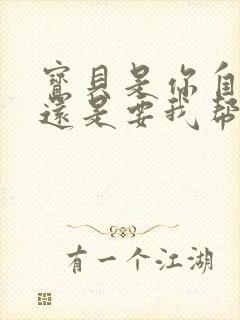 寶貝是你自
還是要我幫
有一个江湖